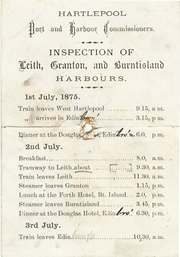 HARTLEPOOL
Port and Harbour Commissioners.
INSPECTION OF
Leith, Granton, and Burntisland
HARBOURS.
1st July, 1875.
Train leaves West Hartlepool 9.15, a.m.
" arrives in Edinbro' 3.15, p.m.
Dinner at the Douglas Hotel, Edinbro' 6.0, p.m.
2nd July.
Breakfast 8.0, a.m.
Tramway to Leith about 9.30, a.m.
Train leaves Leith 11.30, a.m.
Steamer leaves Granton 1.15, p.m.
Lunch at the Forth Hotel, Bt. Island 2.0, p.m.
Steamer leaves Burntisland 3.45, p.m.
Dinner at the Douglas Hotel, Edinbro' 6.30, p.m.
3rd July.
Train leaves 10.30, a.m.